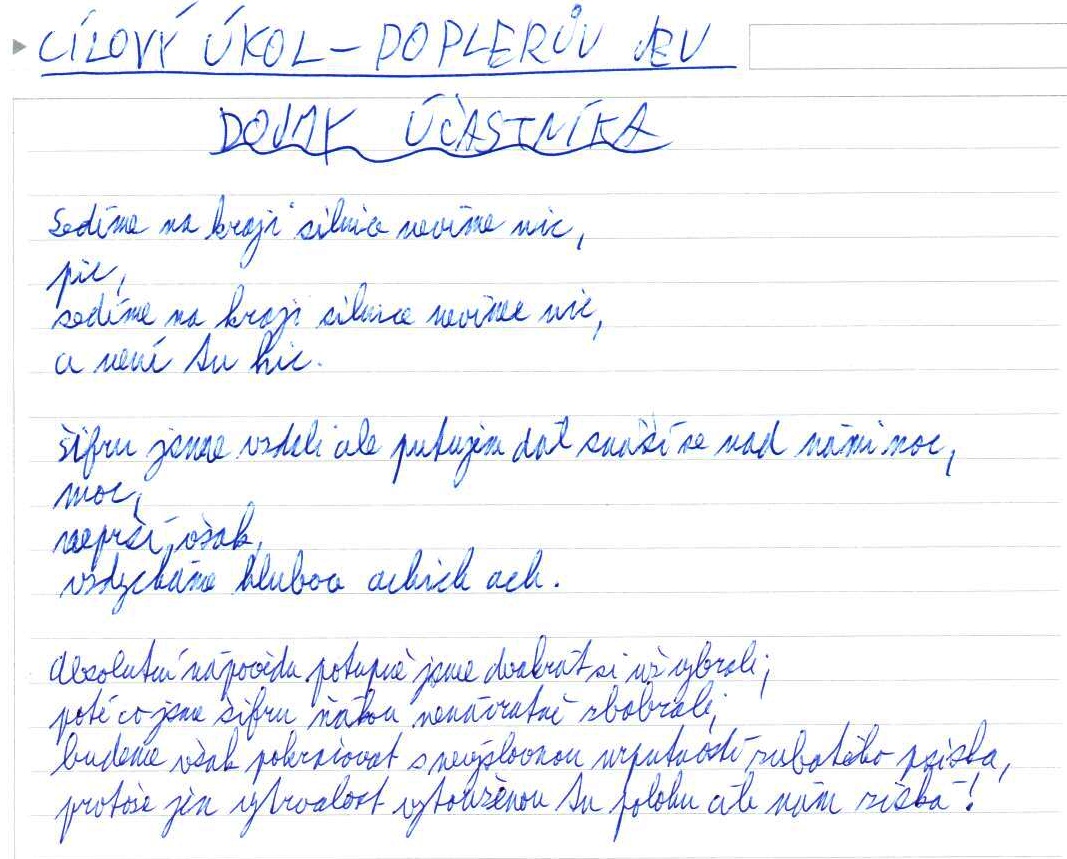 CÍLOVÝ ÚKOL – DOPLERŮV JEV
DOJMY ÚČASTNÍKA
Sedíme na kraji silnice nevíme nic,
pic,
sedíme na kraji silnice nevíme nic,
a není tu hic.
Šifru jsme vzdali ale putujem dál snáší se nad námi noc,
moc,
neprší, však,
vzdycháme hluboce achich ach.
Absolutní nápovědu potupně jsme dvakrát si už vybrali;
poté co jsme šifru ňákou nenávratně zbabrali;
budeme však pokračovat s nevýslovnou urputností zubatého psiska,
protože jen vytrvalost vytouženou tu polohu cíle nám získá!